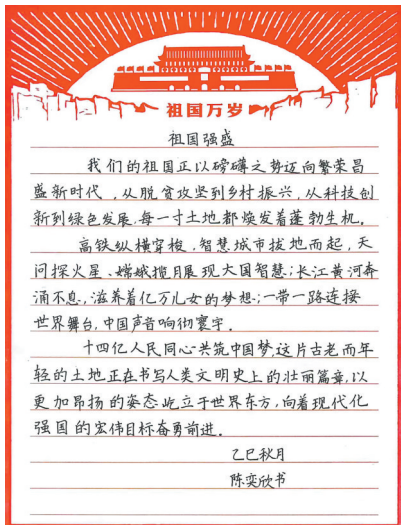 祖国万岁
祖国强盛
我们的祖国正以磅礴之势迈向繁荣昌
盛新时代，从脱贫攻坚到乡村振兴，从科技创
新到绿色发展，每一寸土地都焕发着蓬勃生机。
高铁纵横穿梭，智慧城市拔地而起，天
问探火星、嫦娥揽月展现大国智慧；长江黄河奔
涌不息，滋养着亿万儿女的梦想；一带一路连接
世界舞台，中国声音响彻寰宇。
十四亿人民同心共筑中国梦，这片古老而年
轻的土地正在书写人类文明史上的壮丽篇章，以
更加昂扬的姿态屹立于世界东方，向着现代化
强国的宏伟目标奋勇前进。
乙巳秋月
陈奕欣书